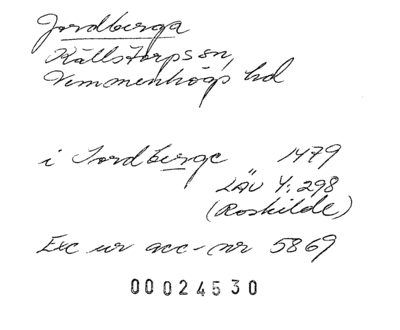 Jordberga
Källstorps sn,
Vemmenhögs hd
i Jordberge 1479
LÄU Y: 298
(Roskilde)
Exc ur acc-nr 5869
00024530